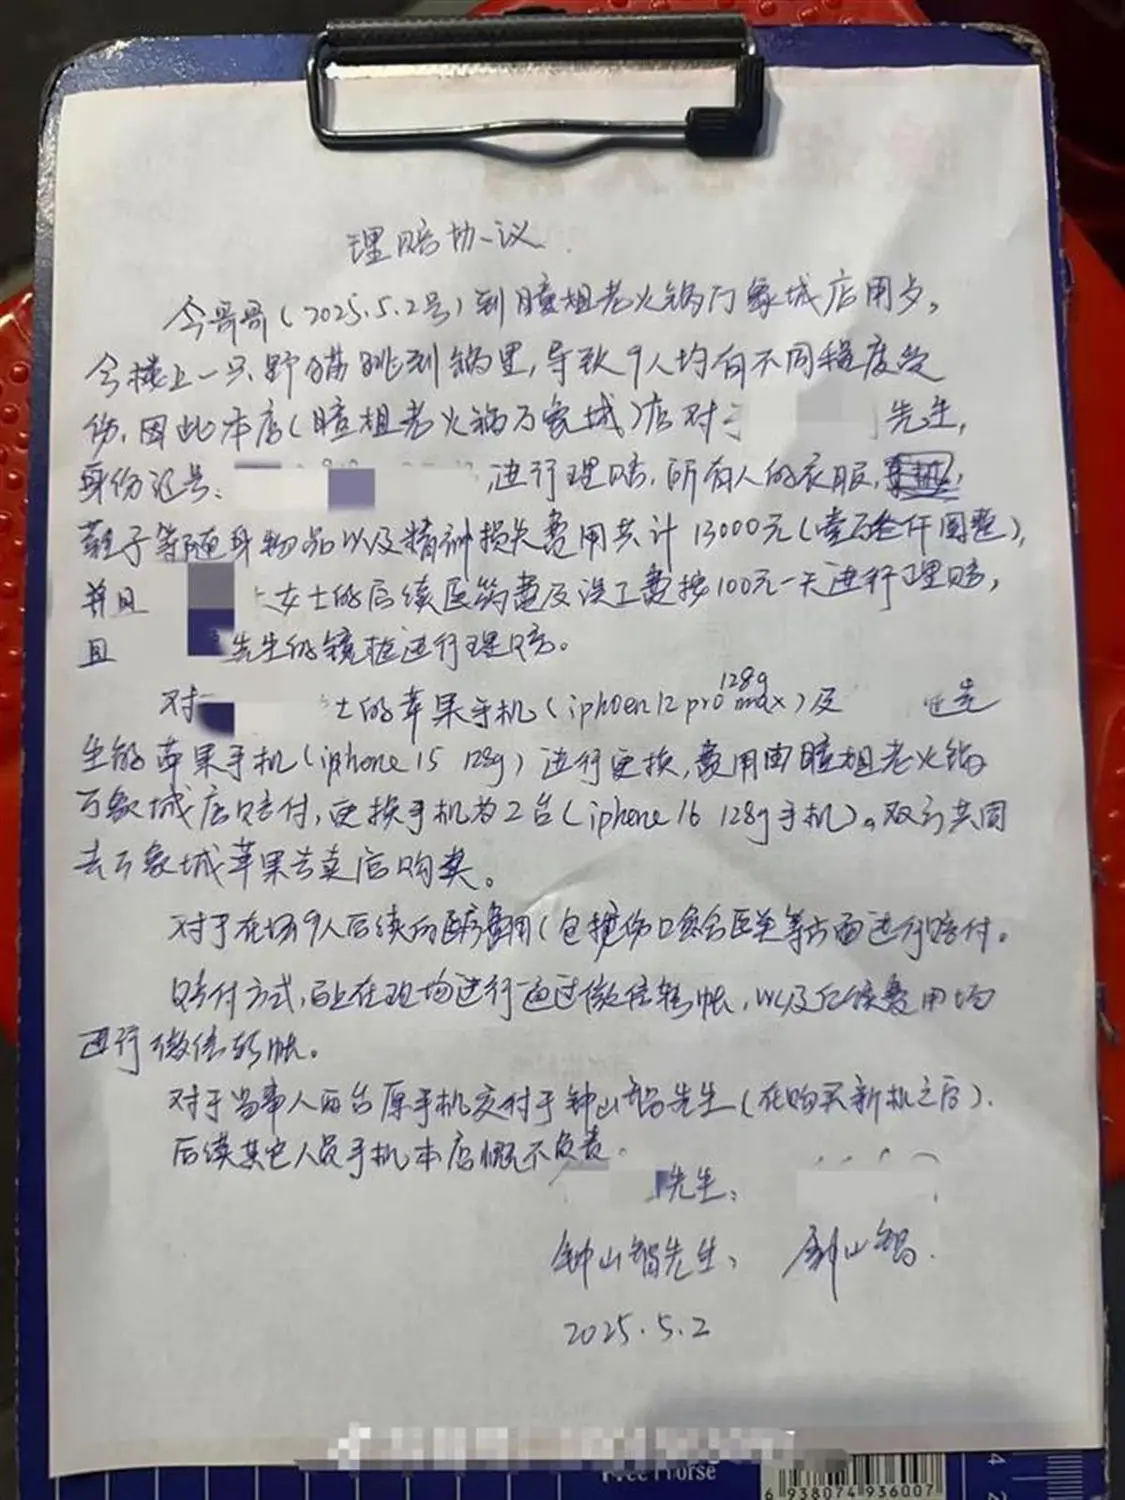 理赔协议
今哥哥(2025.5.2号)到瞳姐老火锅万象城店用夕。
今楼上一只野猫跳到锅里,导致9人均有不同程度受
伤,因此本店(瞳姐老火锅万象城)店对于 先生,
身份证号: 进行理赔,所有人的衣服,
鞋子等随身物品以及精神损失费用共计13000元(壹万叁仟圆整),
并且 女士的后续医药费及误工费按100元一天进行理赔,
且 先生的镜框进行理赔。
对 士的苹果手机(iphoen12 pro max 128g)及 先
生的苹果手机(iphone15 128g)进行更换,费用由瞳姐老火锅
万象城店赔付,更换手机为2台(iphone16 128g手机)。双方共同
去万象城苹果专卖店购买。
对于在场9人后续的医疗费用(包括伤口愈合医美等方面进行赔付。
赔付方式,马上在现场进行通过微信转帐,以及后续费用均
进行微信转帐。
对于当事人两台原手机交付于钟山智先生(在购买新机之后).
后续其它人员手机本店概不负责。
先生:
钟山智先生: 钟山智.
2025.5.2
Free Horse
6 938074 936007
4
2